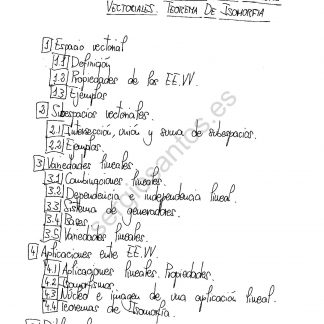 VECTORIALES. TEOREMA DE ISOMORFÍA
1 Espacio vectorial
1.1 Definición
1.2 Propiedades de los EE.VV.
1.3 Ejemplos
2 Subespacios vectoriales.
2.1 Intersección, unión y suma de subespacios.
2.2 Ejemplos.
3 Variedades lineales.
3.1 Combinaciones lineales.
3.2 Dependencia e independencia lineal.
3.3 Sistema de generadores.
3.4 Bases.
3.5 Variedades lineales.
4 Aplicaciones entre EE.VV.
4.1 Aplicaciones lineales. Propiedades.
4.2 Isomorfismos.
4.3 Núcleo e imagen de una aplicación lineal.
4.4 Teoremas de Isomorfía.
sergiosantos.es